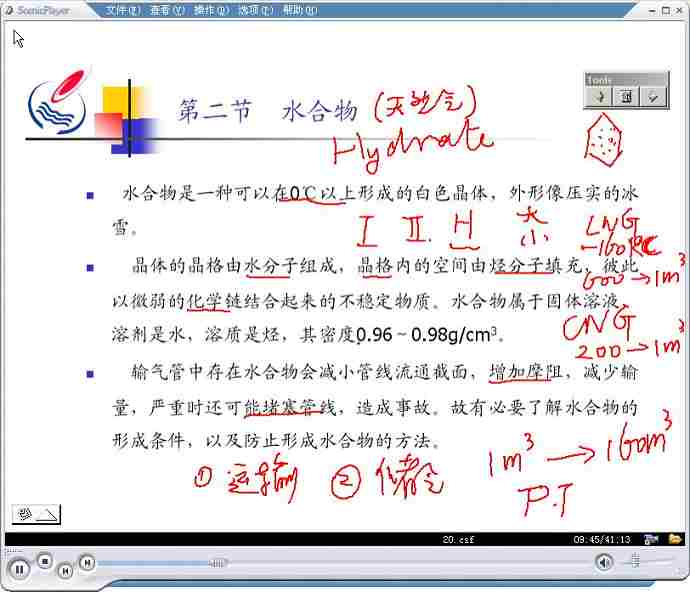 ScenicPlayer 文件(F) 查看(V) 操作(O) 选项(T) 帮助(H)
Tools
第二节 水合物 (天然气)
Hydrate
水合物是一种可以在0℃以上形成的白色晶体，外形像压实的冰
雪。
I II H 大 小
LNG
-160℃
600→1m³
晶体的晶格由水分子组成，晶格内的空间由烃分子填充，彼此
以微弱的化学链结合起来的不稳定物质。水合物属于固体溶液，
溶剂是水，溶质是烃，其密度0.96～0.98g/cm³。
CNG
200→1m³
输气管中存在水合物会减小管线流通截面，增加摩阻，减少输
量，严重时还可能堵塞管线，造成事故。故有必要了解水合物的
形成条件，以及防止形成水合物的方法。
① 运输 ② 储气
1m³→160m³
P.T
20.csf 09:45/41:13